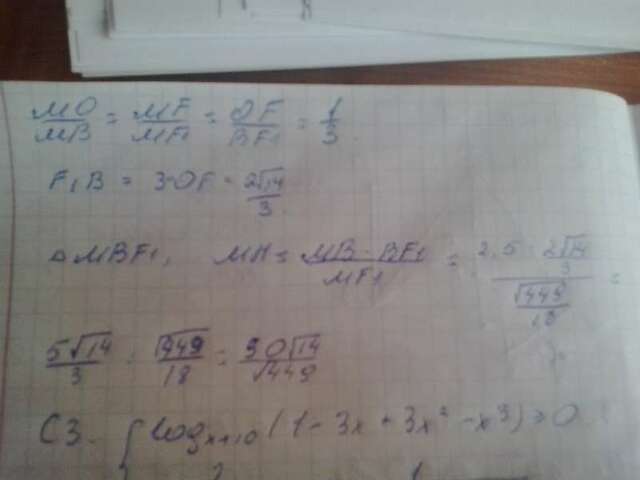 MO/MB = MF/MF₁ = OF/BF₁ = 1/3
F₁B = 3·OF = 2√14/3
Δ MBF₁, MH = MB·BF₁/MF₁ = 2,5 · 2√14/3 / √449/18 =
5√14/3 : √449/18 = 30√14/√449
C3. { log x+10 (1 - 3x + 3x² - x³) ≥ 0